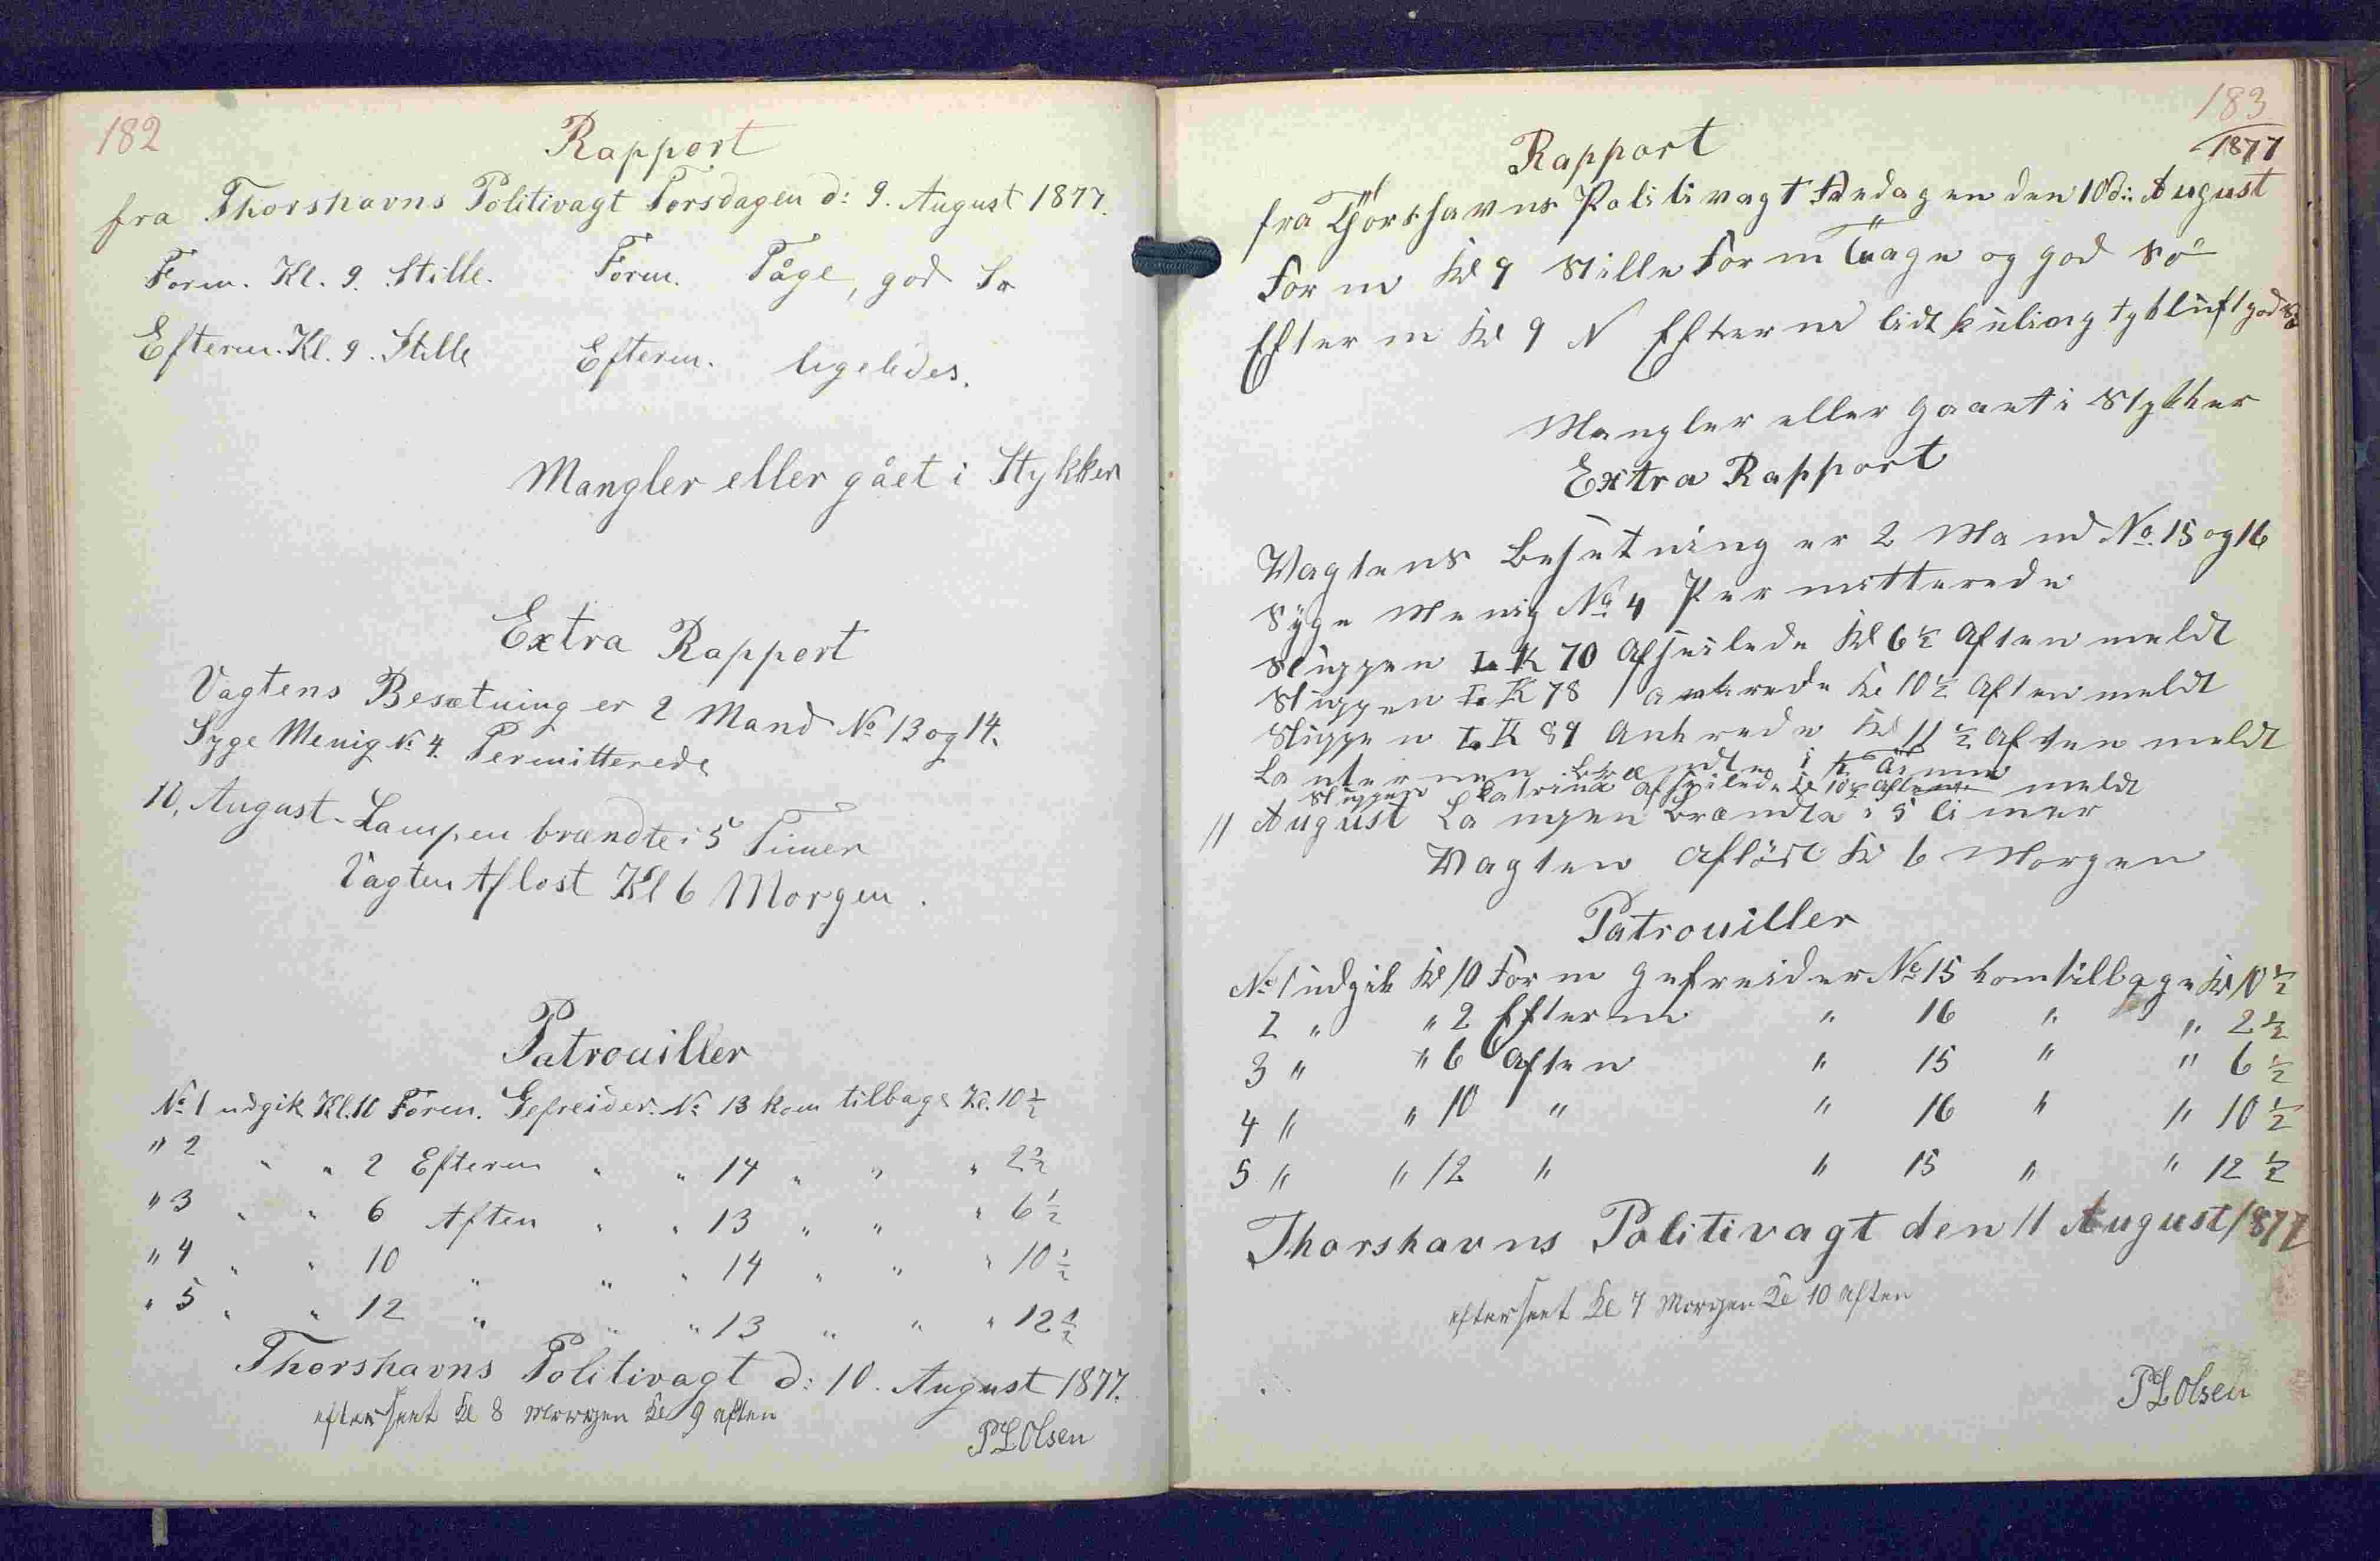 182
Rapport
fra Thorshavns Politivagt Torsdagen d: 9. August 1877.
Form. Kl. 9. Stille. Form. Tåge, god Sø
Efterm. Kl. 9. Stille Efterm. ligeledes.
Mangler eller gået i Stykker
Extra Rapport
Vagtens Besætning er 2 Mand No 13 og 14.
Syge Menig No 4. Permitterede
10. August - Lampen brændte i 5 Timer
Vagten Afløst Kl 6 Morgen.
Patrouiller
No 1 udgik Kl. 10 Form. Gefreider No 13 kom tilbage Kl. 10 1/2
" 2 " " 2 Efterm " " 14 " " " 2 1/2
" 3 " " 6 Aften " " 13 " " " 6 1/2
" 4 " " 10 " " " 14 " " " 10 1/2
" 5 " " 12 " " " 13 " " " 12 1/2
Thorshavns Politivagt d: 10. August 1877.
efterseet Kl 8 Morgen Kl 9 aften
P L Olsen
183
1877
Rapport
fra Thorshavns Politivagt Fredagen den 10 d: August
Form Kl 9 Stille Form Taage og god Sø
Efterm Kl 9 N Efterm lidt kuling tykluft god Sø
Mangler eller gaaet i Stykker
Extra Rapport
Vagtens Besetning er 2 Mand No. 15 og 16
Syge Menig No 4 Permitterede
Sluppen L K 70 Afseilede Kl 6 1/2 Aften meldt
Sluppen L K 78 ankrede Kl 10 1/2 Aften meldt
Sluppen L K 89 Ankrede Kl 11 1/2 Aften meldt
Lanternen brændte i
Sluppen Katrina afseilede Kl 10 1/2 Aften meldt
11 August Lampen Brændte i 5 timer
Vagten Afløst Kl 6 Morgen
Patrouiller
No 1 udgik Kl 10 Form Gefreider No 15 kom tilbage Kl 10 1/2
2 " " 2 Efterm " 16 " " 2 1/2
3 " " 6 Aften " 15 " " 6 1/2
4 " " 10 " " 16 " " 10 1/2
5 " " 12 " " 15 " " 12 1/2
Thorshavns Politivagt den 11 August 1877
efterseet Kl 7 Morgen Kl 10 aften
P L Olsen